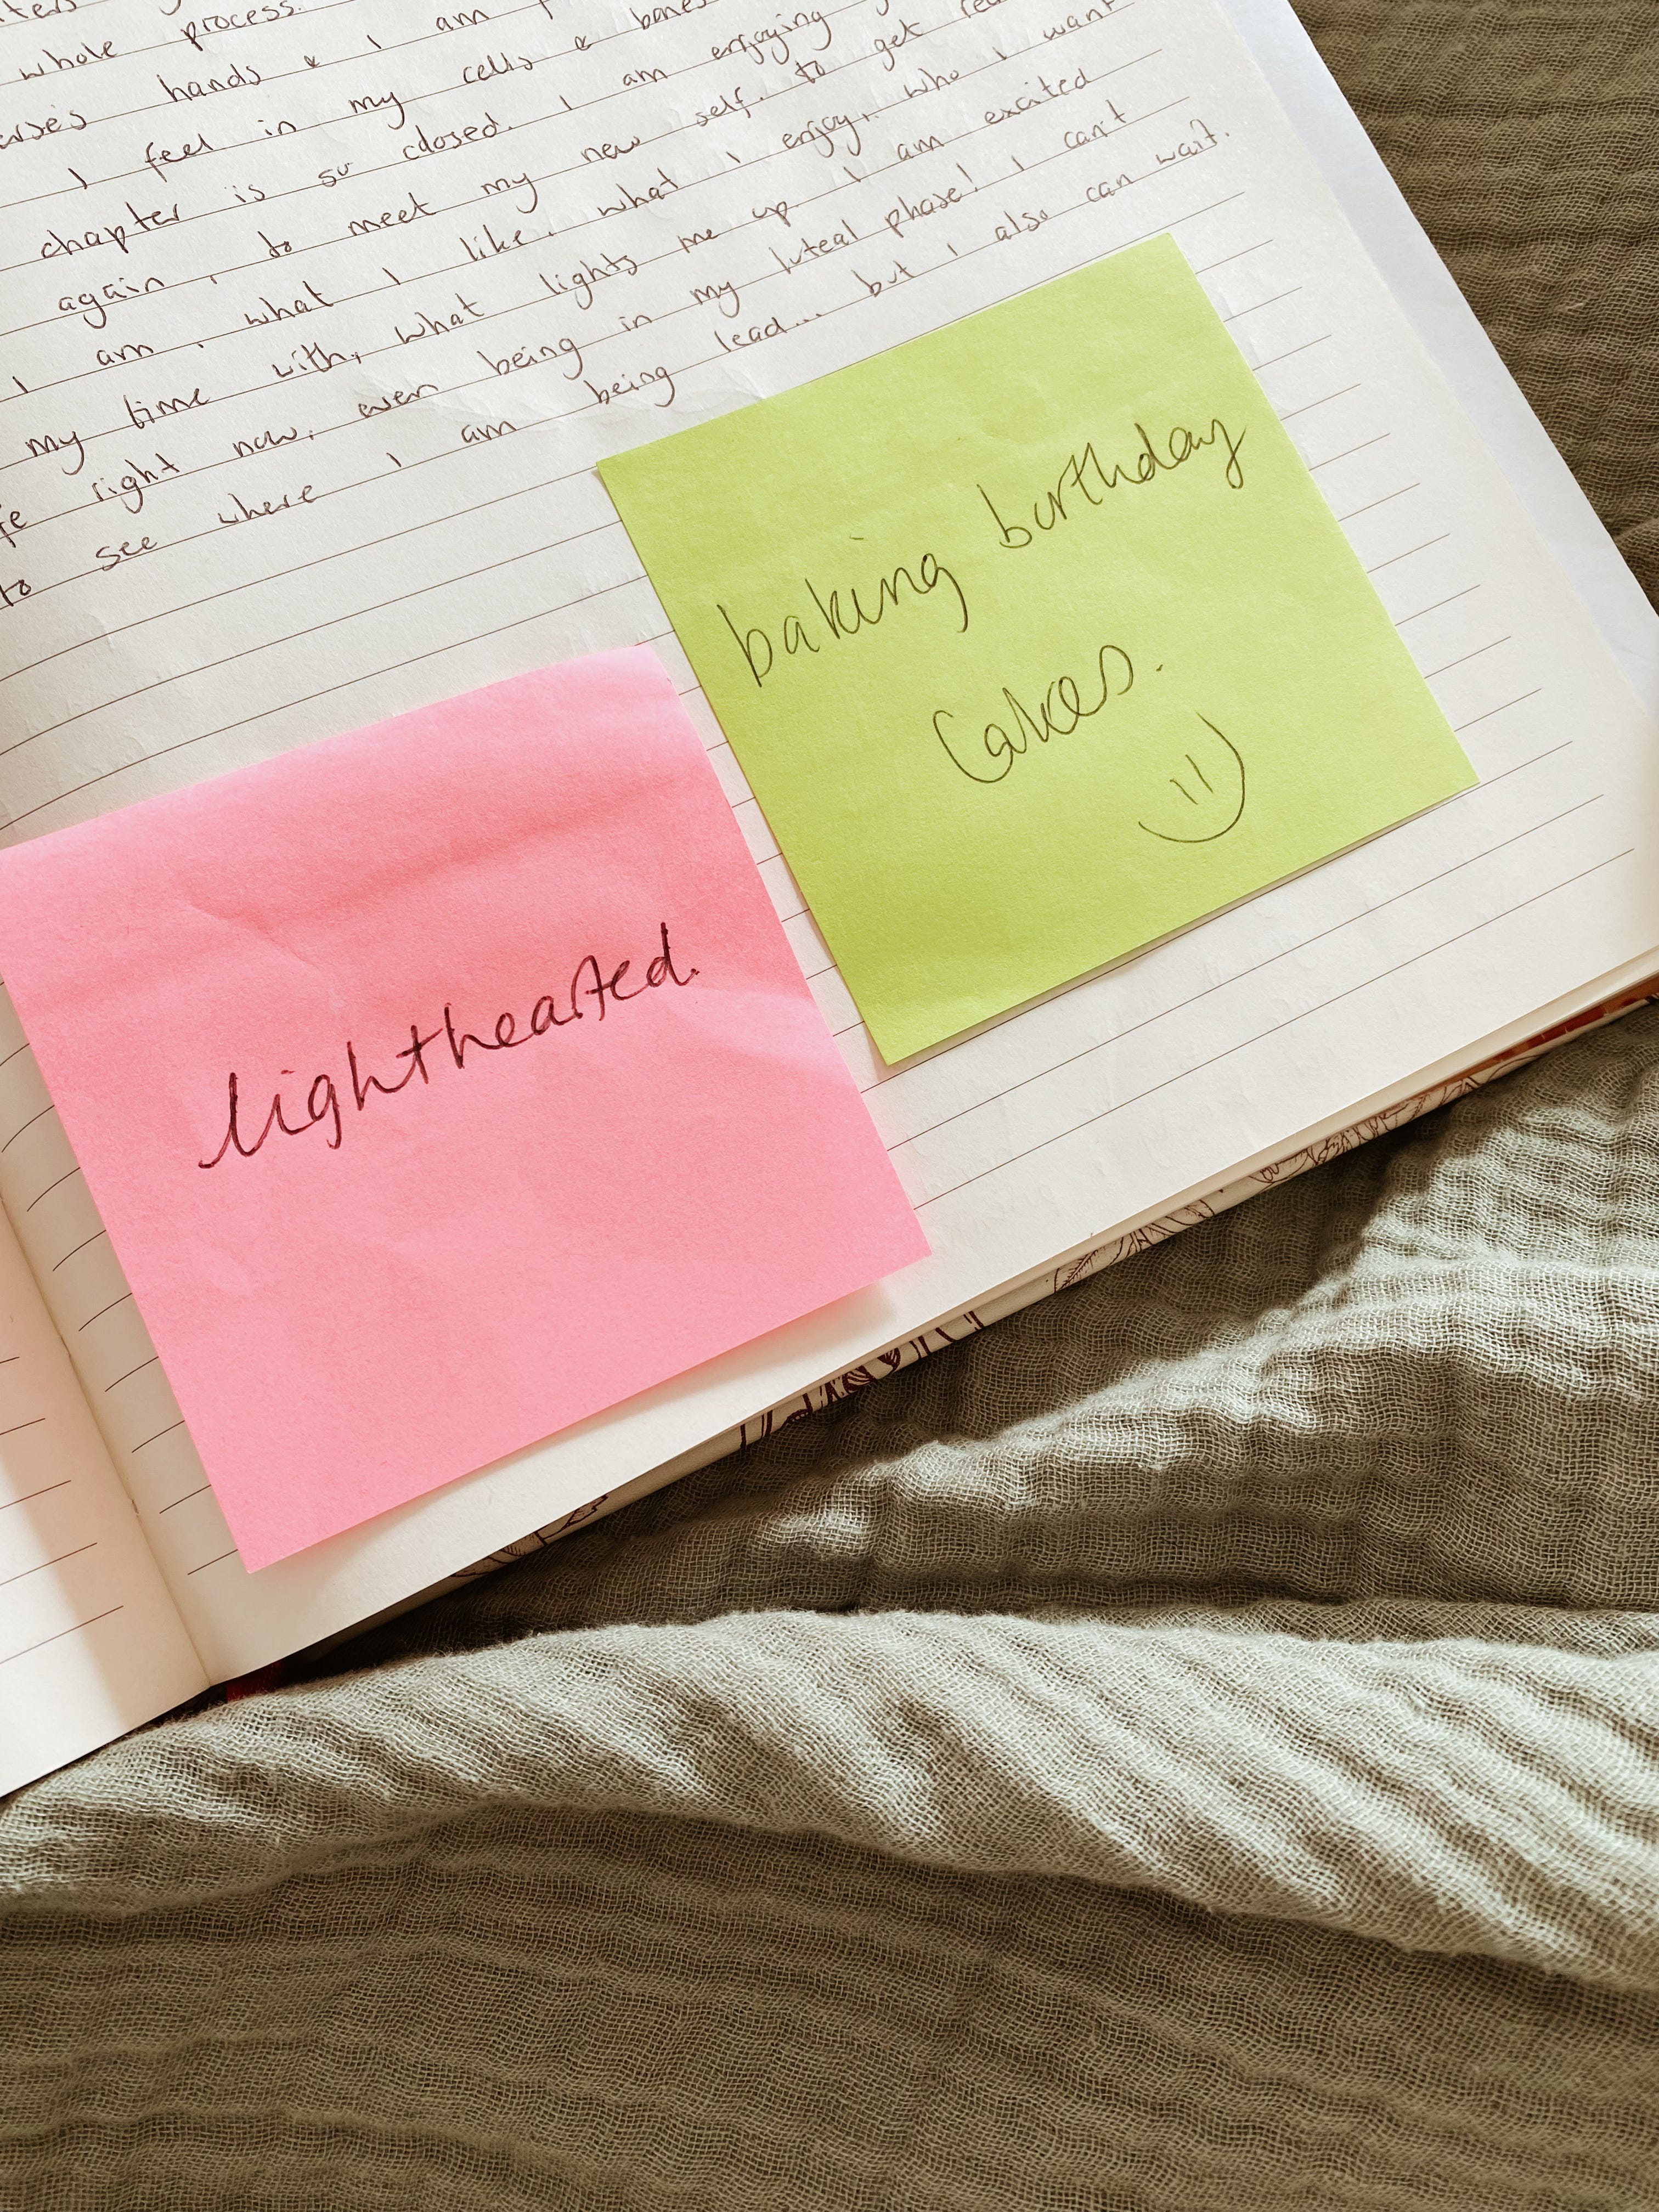 whole process.
hands & I am
I feel in my cells & bones
chapter is so closed. I am enjoying
again, to meet my new self. to get
I am, what I like, what I enjoy, who I want
my time with, what lights me up I am excited
right now, even being in my luteal phase! I can't
to see where I am being lead... but I also can wait.
baking birthday
Cakes.
lighthearted.